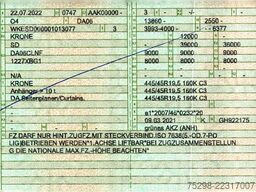 22.07.2022 0747 AAK00000 -
13860- 2550-
O4 DA06
WKESD000001013077 3
3993-4000 -- --6377
KRONE
12000
SD
39000 36000
DA06CLNF
9000 9000 9000
1227XBG1
8000 8000 8000
N/A
KRONE
445/45R19.5 160K C3
Anhänger > 10 t
445/45R19,5 160K C3
DA Seitenplanen/Curtains.
445/45R19.5 160K C3
09.03.2021 K GH922175
grünes AKZ (ANH)
FZ.DARF NUR HINT.ZUGFZ.MIT STECKVERBIND.ISO 7638
LIG)BETRIEBEN WERDEN*1.ACHSE LIFTBAR BEI ZUGZUSAMMENSTELLUN
G DIE NATIONALE MAX.FZ.-HÖHE BEACHTEN*
75298-22317007